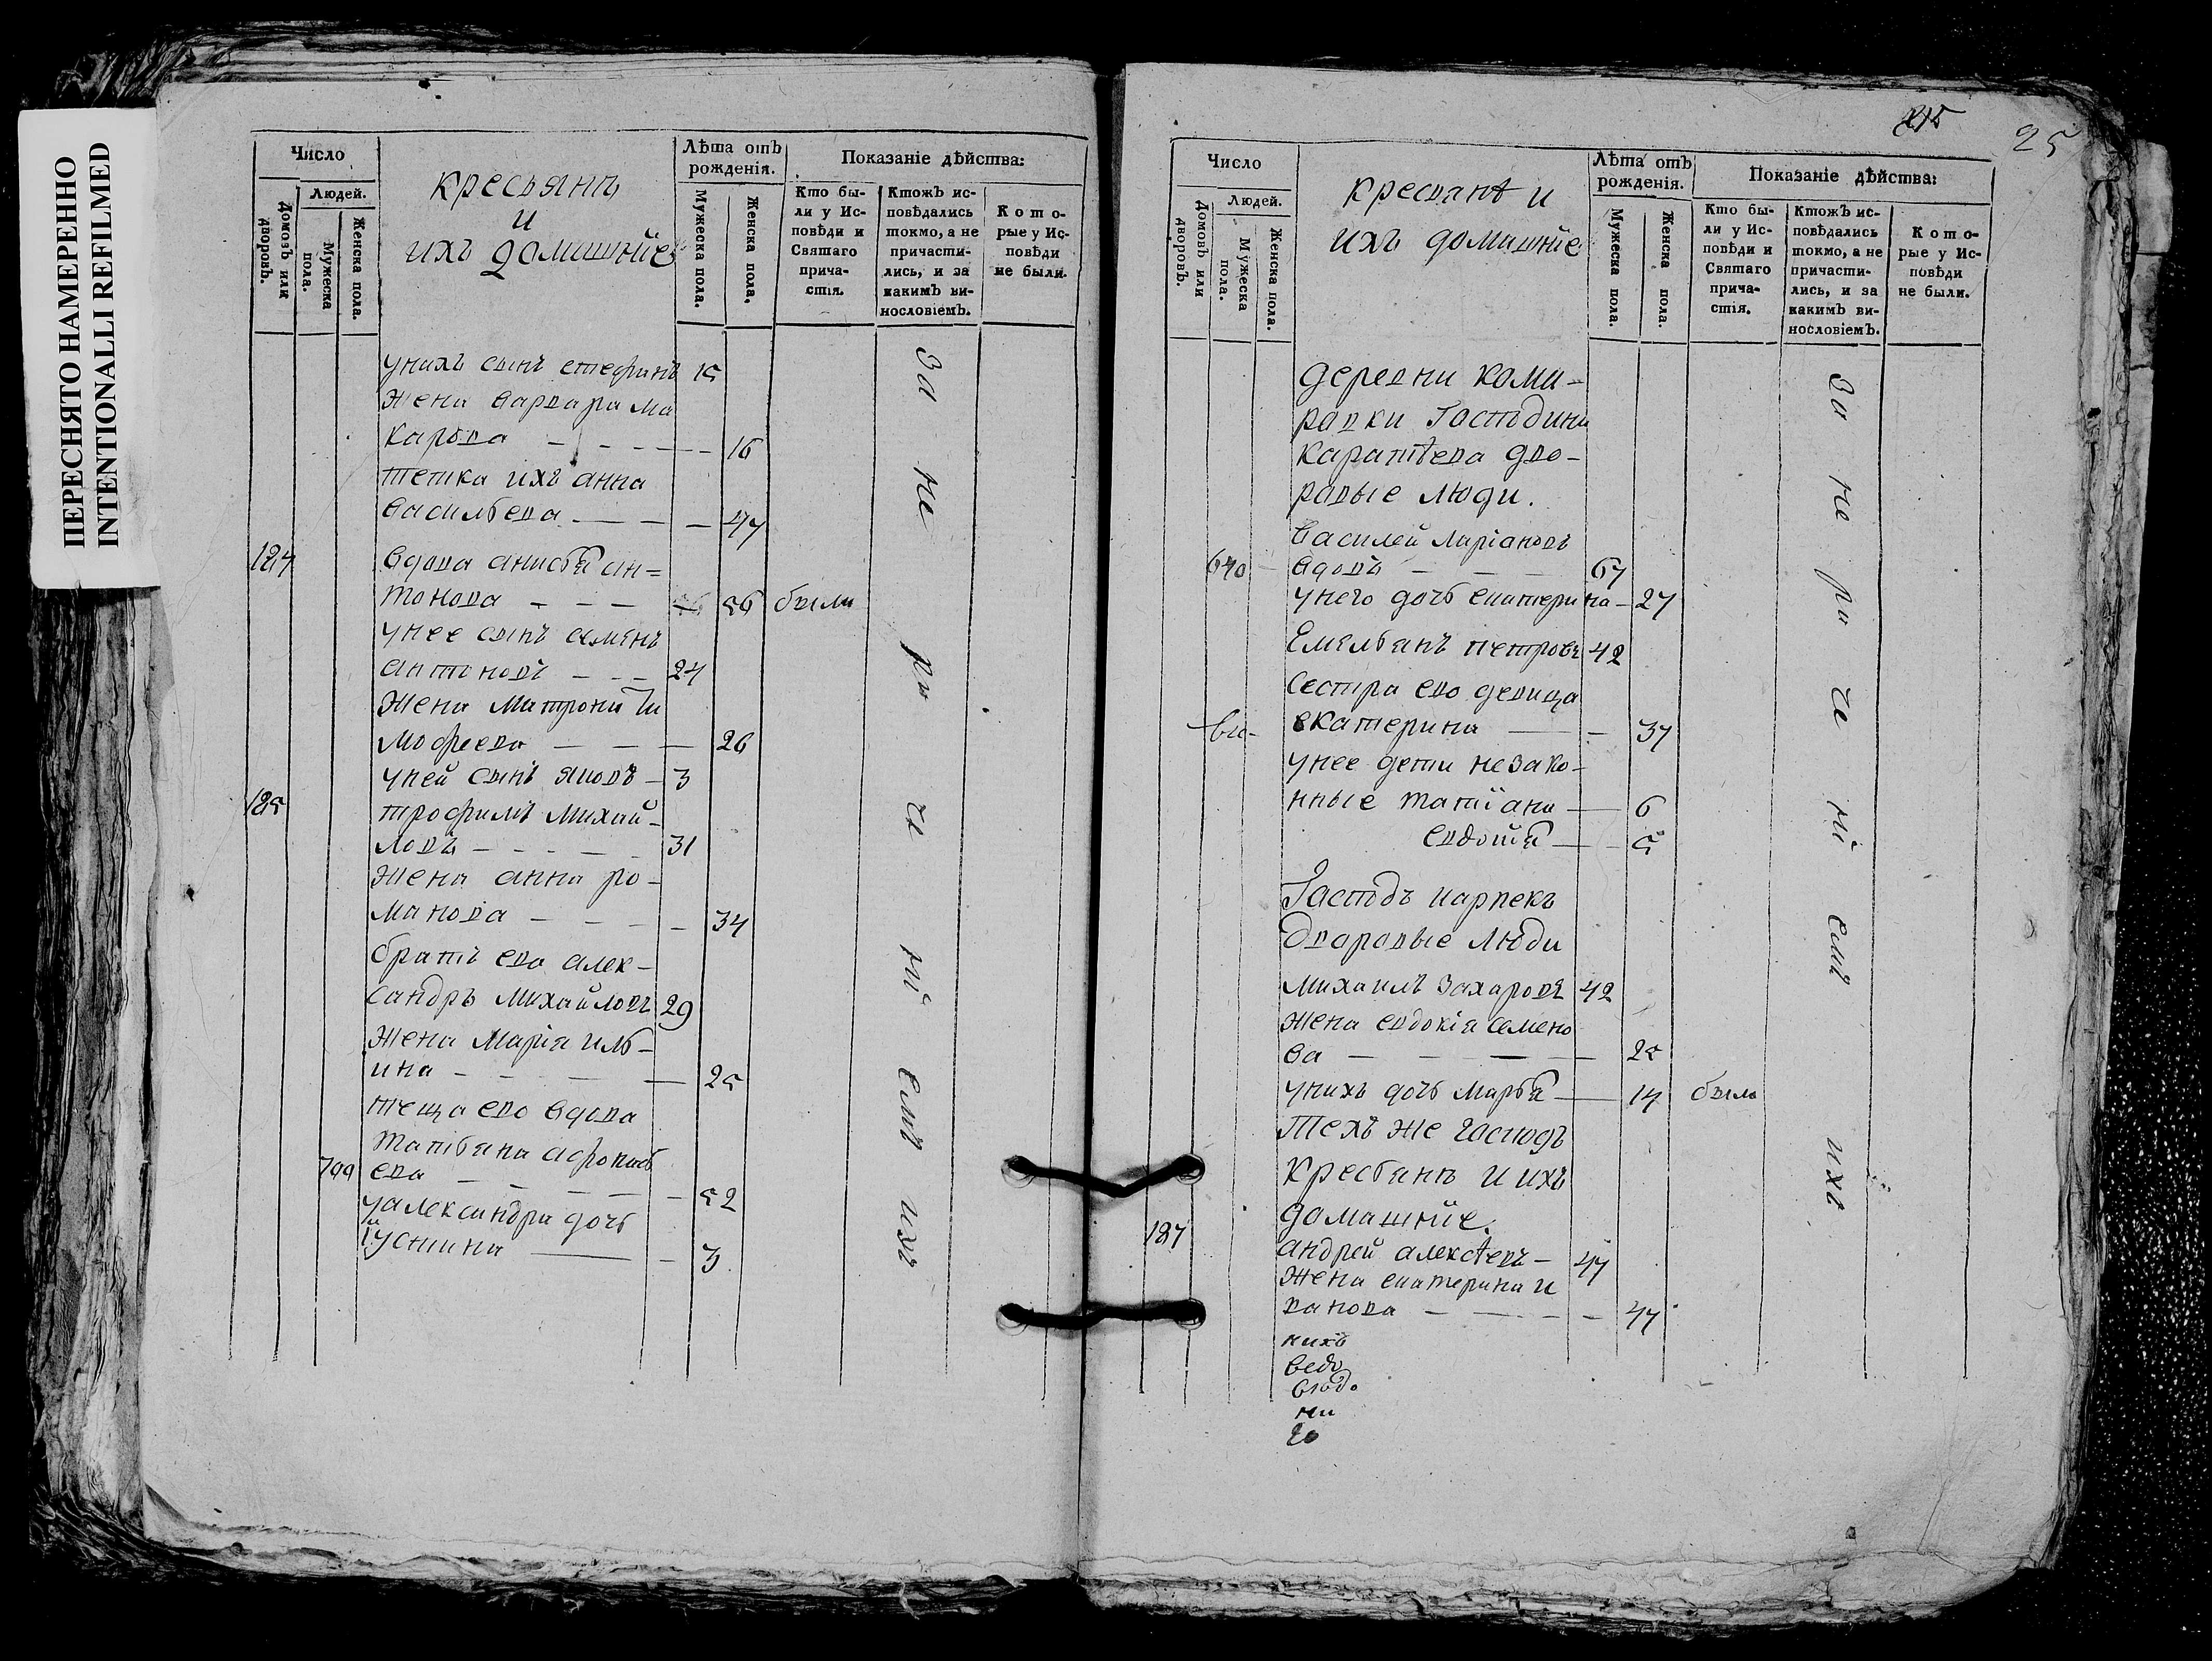 ПЕРЕСНЯТО НАМЕРЕННО
INTENTIONALLI REFILMED
Число
Людей.
Домовъ или дворовъ.
Мужеска пола.
Женска пола.
кресьянъ
и
ихъ домашнйе
Лѣта отъ рожденія.
Мужеска пола.
Женска пола.
Показаніе дѣйства:
Кто были у Исповѣди и Святаго причастія.
Ктожъ исповѣдались токмо, а не причастились, и за какимъ винословіемъ.
Которые у Исповѣди не были.
унихъ сынъ стефанъ 15
жена варвара ма
карова 16
тетка ихъ анна
васильева 47
184 вдова анисья ан=
тонова 56 были
унее сынъ семенъ
антоновъ 24
жена матрона ти
мофеева 26
уней сынъ яковъ 3
185 трофимъ михай-
ловъ 31
жена анна ро-
манова 34
братъ ево алек-
сандръ михайловъ 29
жена марія иль-
ина 25
теща ево вдова
татьяна афонась
799 ева 52
уалександра дочь
іустина 3
за не ра че ній емъ ихъ
215
25
Число
Людей.
Домовъ или дворовъ.
Мужеска пола.
Женска пола.
кресянъ и
ихъ домашнйе
Лѣта отъ рожденія.
Мужеска пола.
Женска пола.
Показаніе дѣйства:
Кто были у Исповѣди и Святаго причастія.
Ктожъ исповѣдались токмо, а не причастились, и за какимъ винословіемъ.
Которые у Исповѣди не были.
деревни кома-
ровки Господина
каратѣева дво-
ровые люди.
василей ларіановъ
640 вдовъ 67
унего дочь екатерина 27
Емельянъ петровъ 42
сестра ево девица
екатерина 37
унее дети незако-
нные татіана 6
евдокія 5
Господъ карпекъ
дворовые люди
михаилъ захаровъ 42
жена евдокія семено
ва 25
унихъ дочь марья 14 была
Техъ же господъ
кресьянъ и ихъ
домашнйе.
187 андрей алексѣевъ 47
жена екатерина и
ванова 47
нихъ
ни
за не ра че ній емъ ихъ